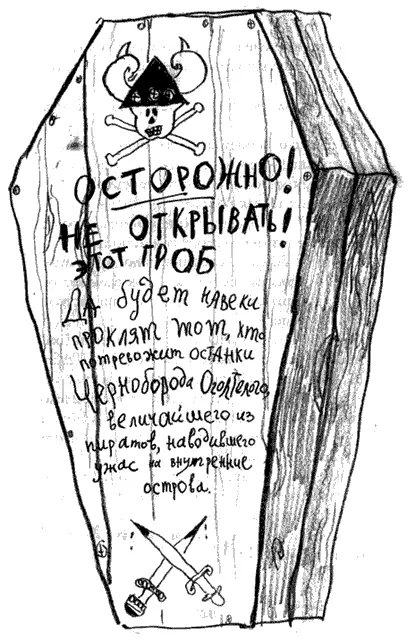 ОСТОРОЖНО!
НЕ ОТКРЫВАТЬ!
ЭТОТ ГРОБ
Да будет навеки
проклят тот, кто
потревожит останки
Чернобородa Оголтелого,
величайшего из
пиратов, наводившего
ужас на внутренние
острова.